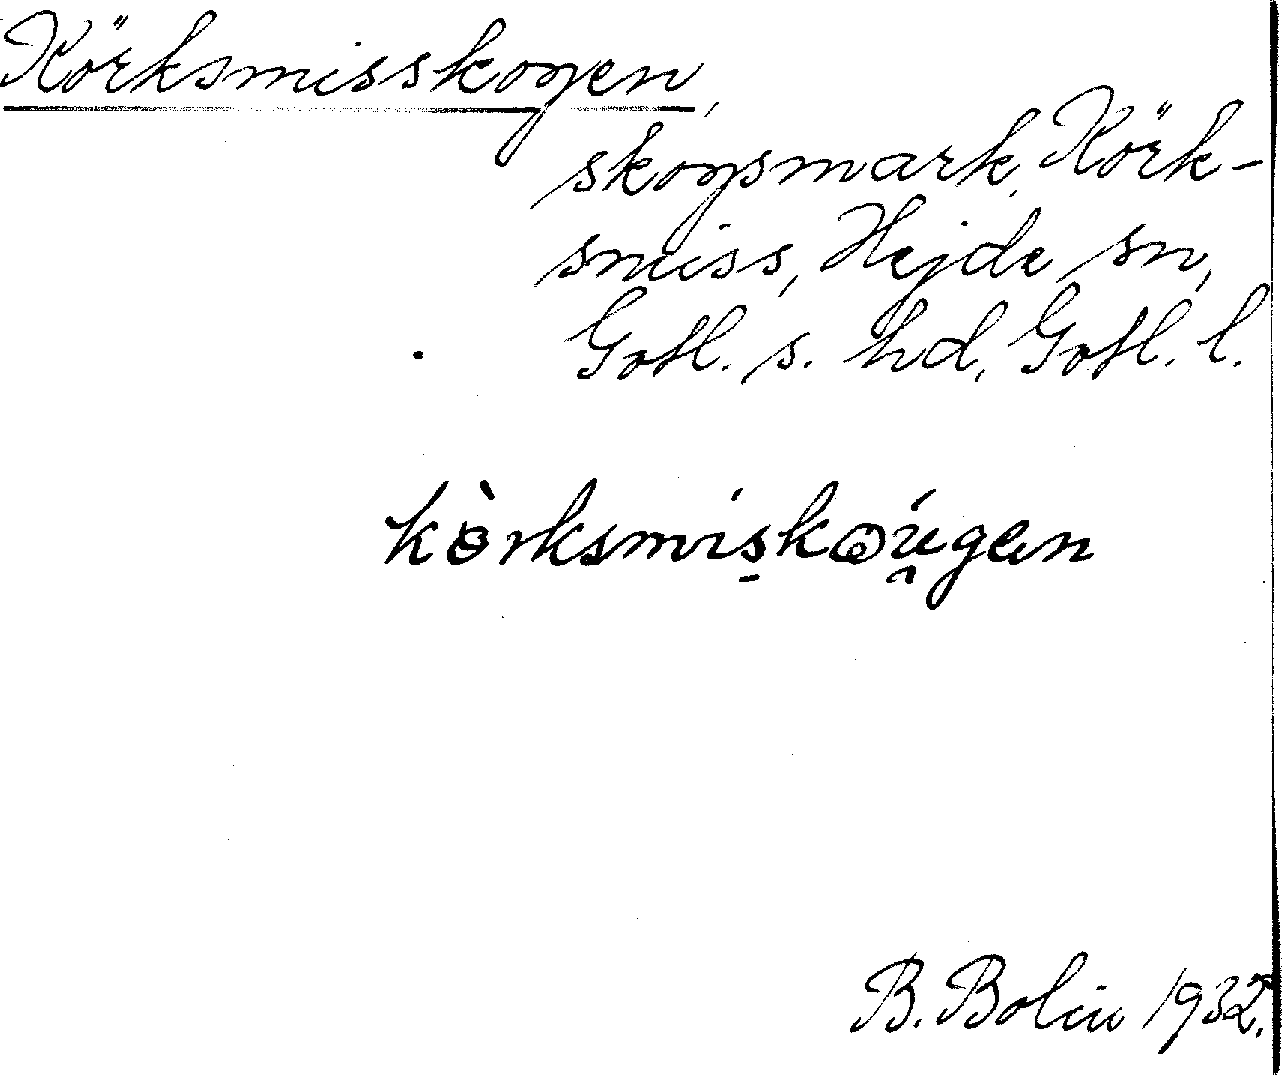 Körksmisskogen,
skogsmark, Körk-
smiss, Hejde sn,
Gotl. s. hd, Gotl. l.
kèrksmis̱kω̯úgen
B. Bolin 1932.